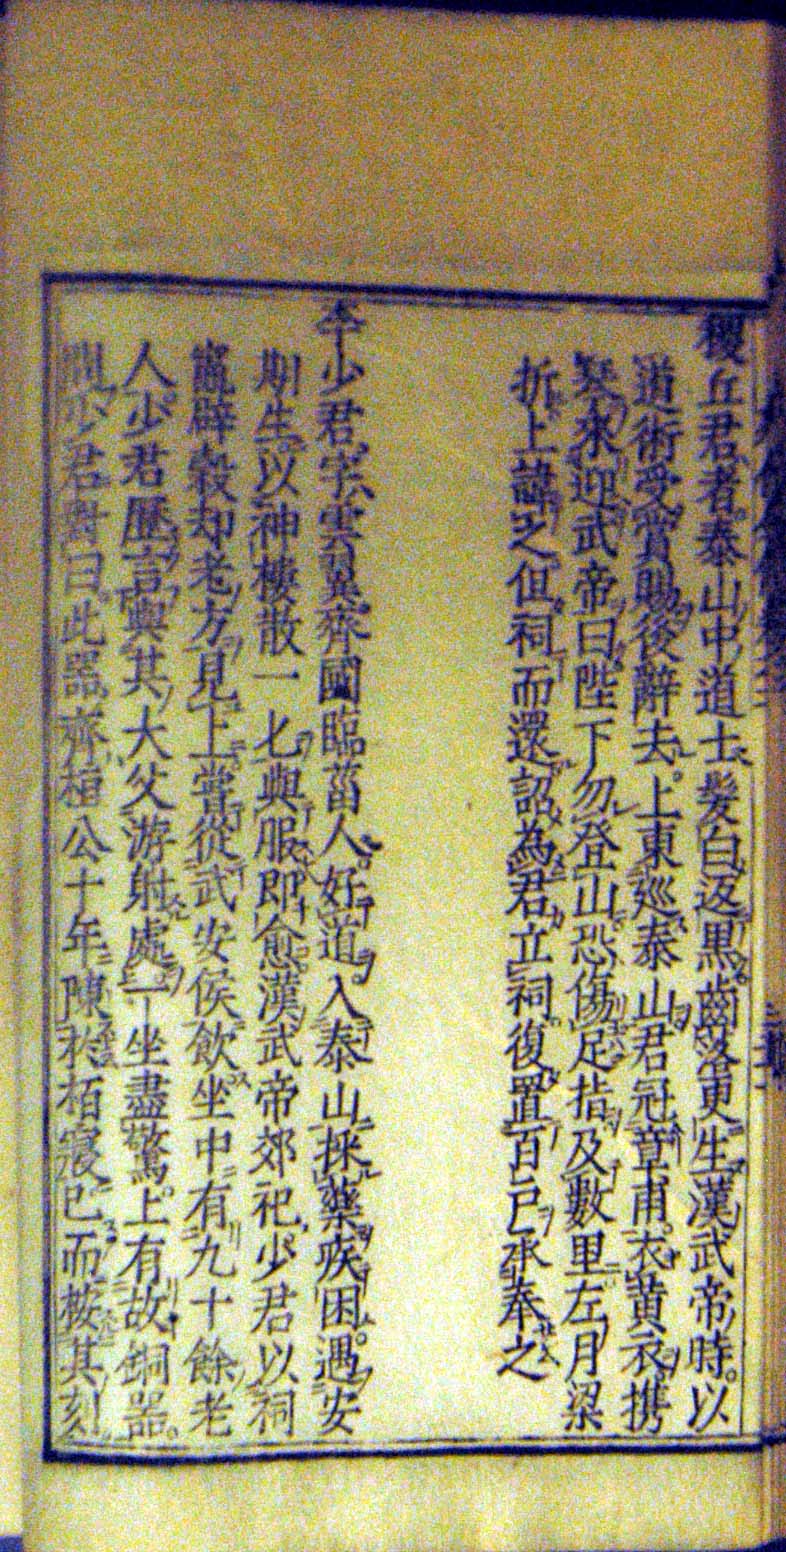 稷丘君者泰山中道士髮白返黒齒落更生漢武帝時以
道術受賞賜後辭去上東廵泰山君冠章甫衣黄衣携
琴來迎武帝曰陛下勿登山恐傷足指及數里左月梁
折上諱之但祠而還詔為君立祠復置百戸承奉之
李少君字雲翼齊國臨菑人好道入泰山採藥疾困遇安
期生以神樓散一匕與服即愈漢武帝郊祀少君以祠
竈辟穀却老方見上嘗從武安侯飲坐中有九十餘老
人少君歷言與其大父游射處一坐盡驚上有故銅器
問少君對曰此器齊桓公十年陳於栢寢已而桉其刻